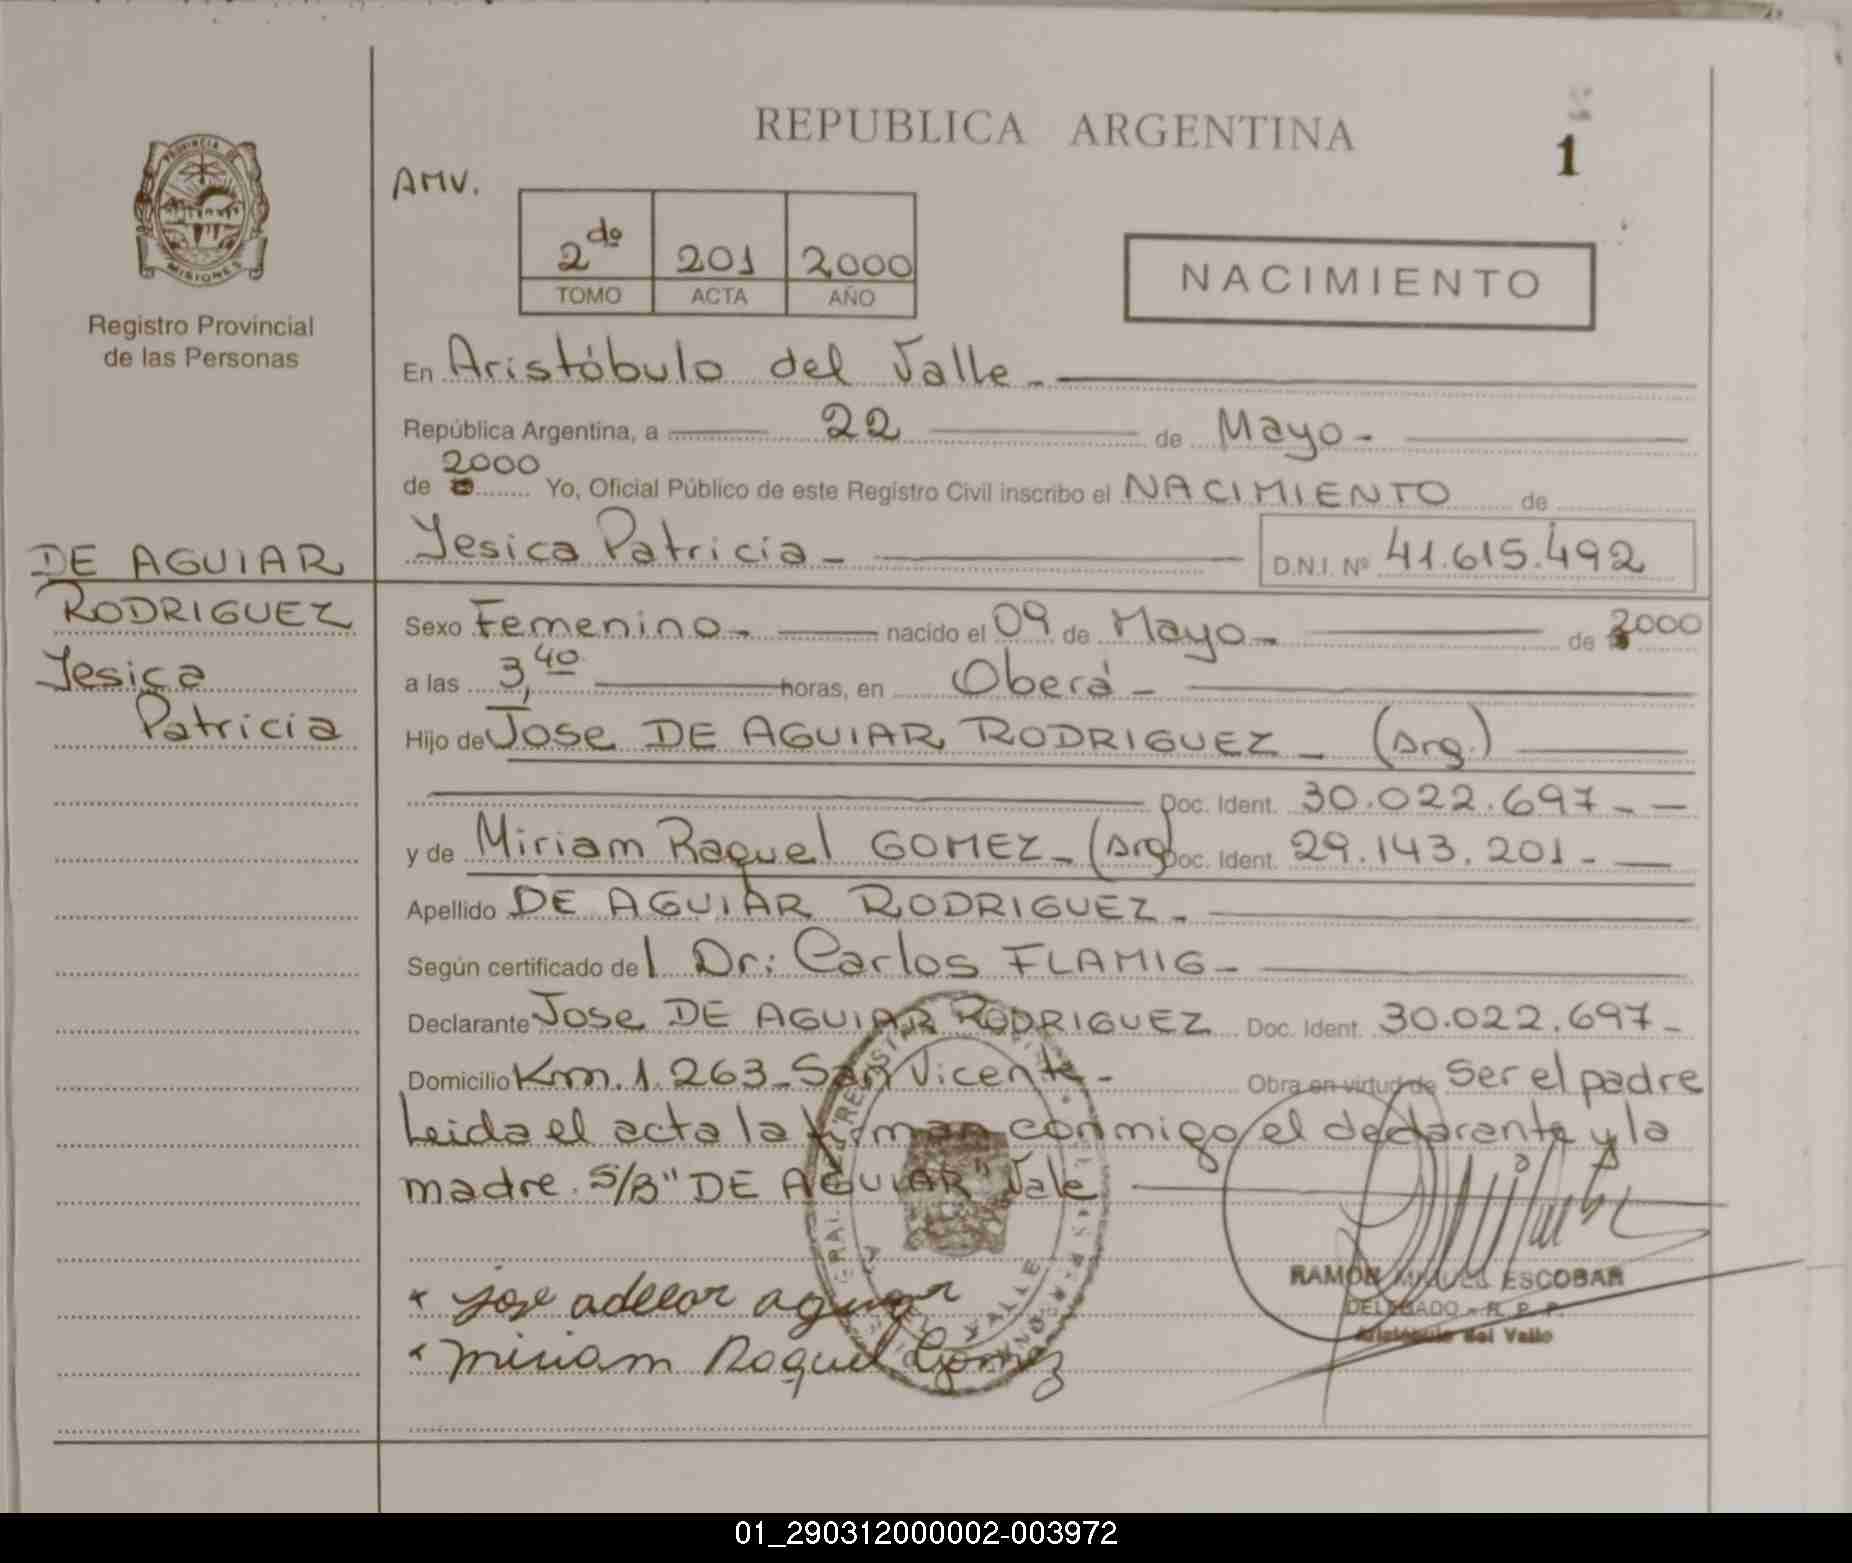 REPUBLICA ARGENTINA
1
PROVINCIA DE
MISIONES
Registro Provincial
de las Personas
AMV.
2do 201 2000
TOMO ACTA AÑO
NACIMIENTO
En Aristóbulo del Valle.
República Argentina, a 22 de Mayo-
de 2000 Yo, Oficial Público de este Registro Civil inscribo el NACIMIENTO de
Yesica Patricia- D.N.I. Nº 41.615.492
DE AGUIAR
RODRIGUEZ
Yesica
Patricia
Sexo Femenino- nacido el 09 de Mayo- de 2000
a las 3,40 horas, en Oberá-
Hijo de Jose DE AGUIAR RODRIGUEZ- (Arg.)
Doc. Ident. 30.022.697--
y de Miriam Raquel GOMEZ- (Arg) Doc. Ident. 29.143.201-
Apellido DE AGUIAR RODRIGUEZ-
Según certificado del Dr: Carlos FLAMIG-
Declarante Jose DE AGUIAR RODRIGUEZ Doc. Ident. 30.022.697-
Domicilio Km. 1.263-San Vicente- Obra en virtud de Ser el padre
Leida el acta la firman conmigo el declarante y la
madre. S/B "DE AGUIAR" Vale
jose adecar aguiar
miriam Raquel Gomez
RAMON MIGUEL ESCOBAR
DELEGADO - R. P. P.
Aristóbulo del Valle
01_290312000002-003972